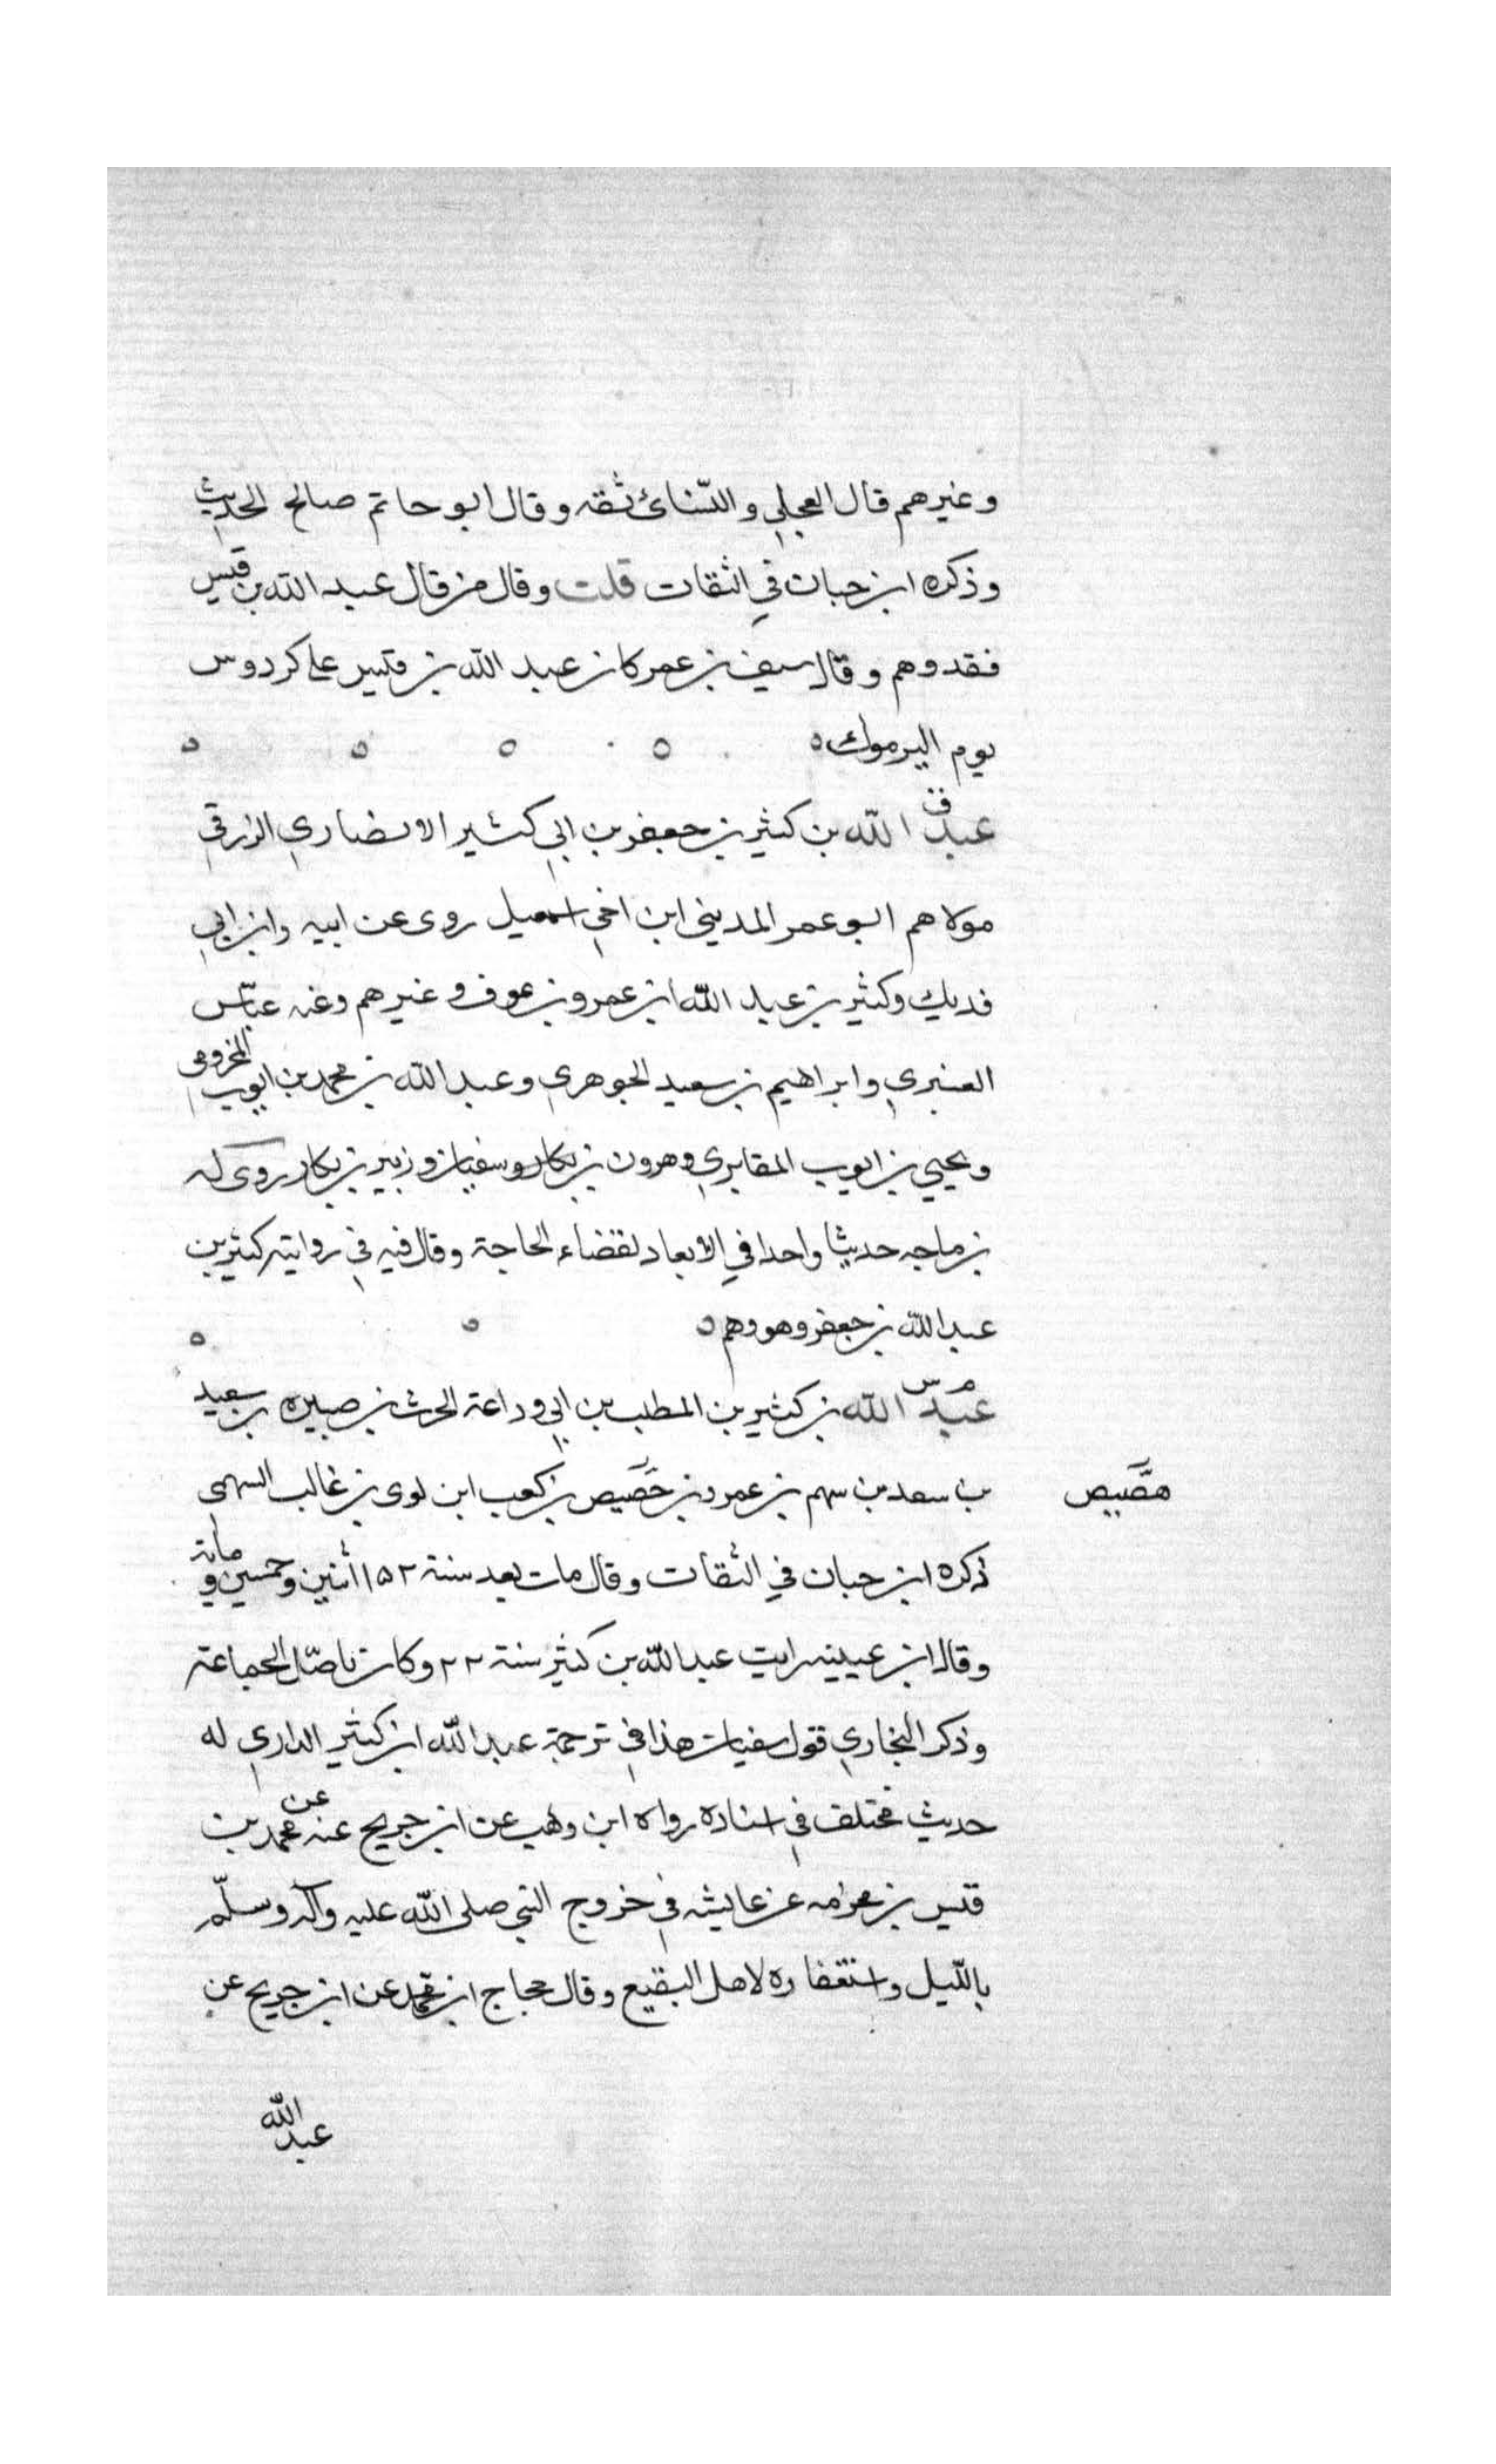 وغيرهم قال العجلي والنّسائ ثقه وقال ابو حاتم صالح الحديث
وذكره ابن حبان في الثقات قلت وقال من قال عبد الله بن قيس
فقد وهم وقال سيف بن عمر كان عبد الله بن قيس على كردوس
يوم اليرموك ه ه ه ه ه
ق
عبد الله بن كثير بن جعفر بن ابي كثير الانصاري الزرقي
مولاهم ابو عمر المديني ابن اخي اسمعيل روى عن ابيه وابن ابي
فديك وكثير بن عبد الله ابن عمرو بن عوف وغيرهم وعنه عباس
العنبري وابراهيم بن سعيد الجوهري وعبد الله بن محمد بن ايوب المخرومى
ويحيي بن ايوب المقابري وهرون بن بكار وسفيان وزبير بن بكار روى له
بن ماجه حديثا واحدا في الابعاد لقضاء الحاجة وقال فيه في روايته كثير بن
عبد الله بن جعفر وهو وهم ه ه ه
م س
عبد الله بن كثير بن المطلب بن ابي وداعة الحرث بن صبيره بن سعيد
بن سعد بن سهم بن عمرو بن حَصَيص بن كعب ابن لوى بن غالب السهمى
هصَّيص
ذكره ابن حبان في الثقات وقال مات بعد سنة ١٥٢ اثنين وخمسين ومائة
وقال ابن عيينه رايت عبد الله بن كثير سنة ٢٢ وكان قاصّ الجماعة
وذكر البخاري قول سفيان هذا في ترجمة عبد الله ابن كثير الداري له
حديث مختلف في اسناده رواه ابن وهب عن ابن جريح عنه عن محمد بن
قيس بن مخرمه عن عايشه في خروج النبي صلى الله عليه وآله وسلّم
بالليل واستغفاره لاهل البقيع وقال حجاج ابن محمد عن ابن جريح عن
عبد الله